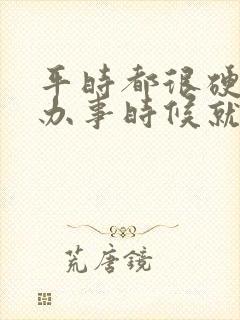 平時都很硬
办事時候就
荒唐鏡